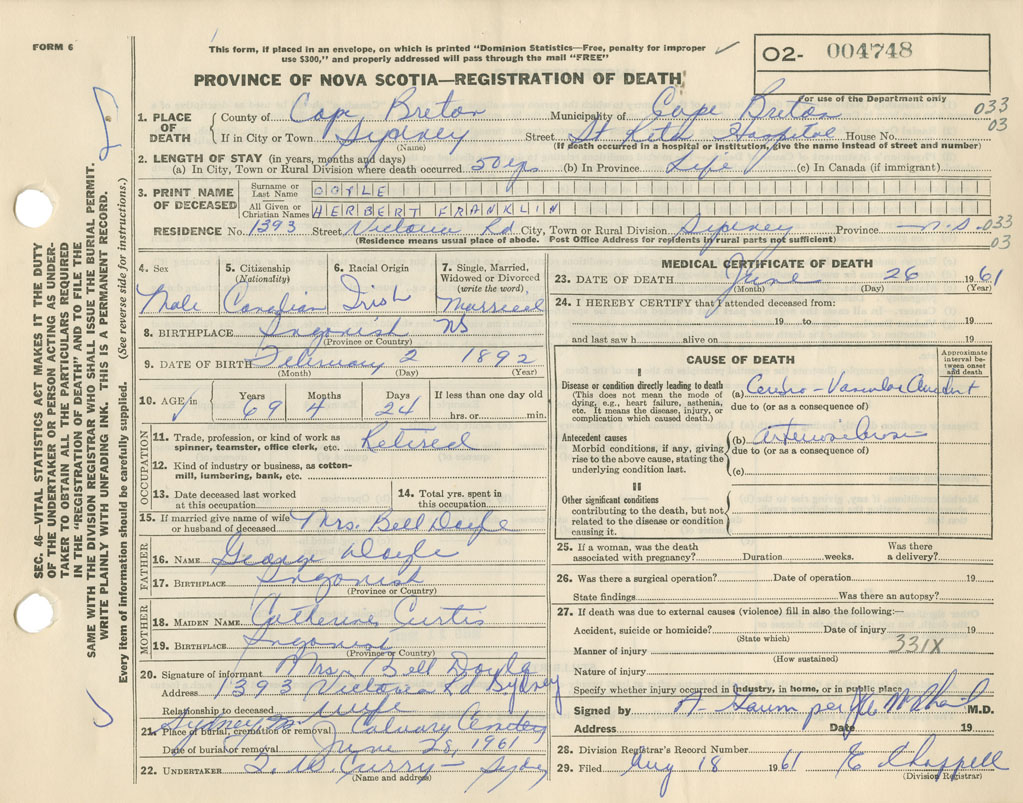 FORM 6
This form, if placed in an envelope, on which is printed "Dominion Statistics—Free, penalty for improper
use $300," and properly addressed will pass through the mail "FREE"
O2- 004748
PROVINCE OF NOVA SCOTIA—REGISTRATION OF DEATH
For use of the Department only
033
03
1. PLACE OF DEATH
County of Cape Breton Municipality of Cape Breton
If in City or Town Sydney Street St Rita Hospital House No.
(Name) (If death occurred in a hospital or institution, give the name instead of street and number)
2. LENGTH OF STAY (in years, months and days)
(a) In City, Town or Rural Division where death occurred 50 yrs (b) In Province Life (c) In Canada (if immigrant)
3. PRINT NAME OF DECEASED
Surname or Last Name DOYLE
All Given or Christian Names HERBERT FRANKLIN
RESIDENCE No. 1393 Street Victoria Rd City, Town or Rural Division Sydney Province N.S. 033
03
(Residence means usual place of abode. Post Office Address for residents in rural parts not sufficient)
4. Sex 5. Citizenship (Nationality) 6. Racial Origin 7. Single, Married, Widowed or Divorced (write the word)
Male Canadian Irish Married
8. BIRTHPLACE Ingonish NS
(Province or Country)
9. DATE OF BIRTH February 2 1892
(Month) (Day) (Year)
10. AGE in Years Months Days If less than one day old
69 4 24 hrs. or min.
OCCUPATION
11. Trade, profession, or kind of work as spinner, teamster, office clerk, etc. Retired
12. Kind of industry or business, as cotton-mill, lumbering, bank, etc.
13. Date deceased last worked at this occupation
14. Total yrs. spent in this occupation
15. If married give name of wife or husband of deceased Mrs. Bell Doyle
FATHER
16. NAME George Doyle
17. BIRTHPLACE Ingonish
(Province or Country)
MOTHER
18. MAIDEN NAME Catherine Curtis
19. BIRTHPLACE Ingonish
(Province or Country)
20. Signature of informant Mrs. Bell Doyle
Address 1393 Victoria Rd Sydney
Relationship to deceased wife
21. Place of burial, cremation or removal Sydney Calvary Cemetery
Date of burial or removal June 28, 1961
22. UNDERTAKER T. W. Curry - Sydney
(Name and address)
MEDICAL CERTIFICATE OF DEATH
23. DATE OF DEATH June 26 1961
(Month) (Day) (Year)
24. I HEREBY CERTIFY that I attended deceased from:
19 to 19
and last saw h alive on 19
CAUSE OF DEATH
Approximate interval between onset and death
I
Disease or condition directly leading to death (a) Cerebro-Vascular Accident
(This does not mean the mode of dying, e.g., heart failure, asthenia, etc. It means the disease, injury, or complication which caused death.)
due to (or as a consequence of)
Antecedent causes (b) arteriosclerosis
Morbid conditions, if any, giving rise to the above cause, stating the underlying condition last.
due to (or as a consequence of)
(c)
II
Other significant conditions
contributing to the death, but not related to the disease or condition causing it.
25. If a woman, was the death associated with pregnancy? Duration weeks. Was there a delivery?
26. Was there a surgical operation? Date of operation 19
State findings Was there an autopsy?
27. If death was due to external causes (violence) fill in also the following:—
Accident, suicide or homicide? Date of injury 19
(State which)
Manner of injury 331X
(How sustained)
Nature of injury
Specify whether injury occurred in industry, in home, or in public place
Signed by A. Gaum per M.D.
Address Date 19
28. Division Registrar's Record Number
29. Filed Aug 18 1961 E Chappell
(Division Registrar)
SEC. 46—VITAL STATISTICS ACT MAKES IT THE DUTY
OF THE UNDERTAKER OR PERSON ACTING AS UNDER-
TAKER TO OBTAIN ALL THE PARTICULARS REQUIRED
IN THE "REGISTRATION OF DEATH" AND TO FILE THE
SAME WITH THE DIVISION REGISTRAR WHO SHALL ISSUE THE BURIAL PERMIT.
WRITE PLAINLY WITH UNFADING INK. THIS IS A PERMANENT RECORD.
Every item of information should be carefully supplied. (See reverse side for instructions.)